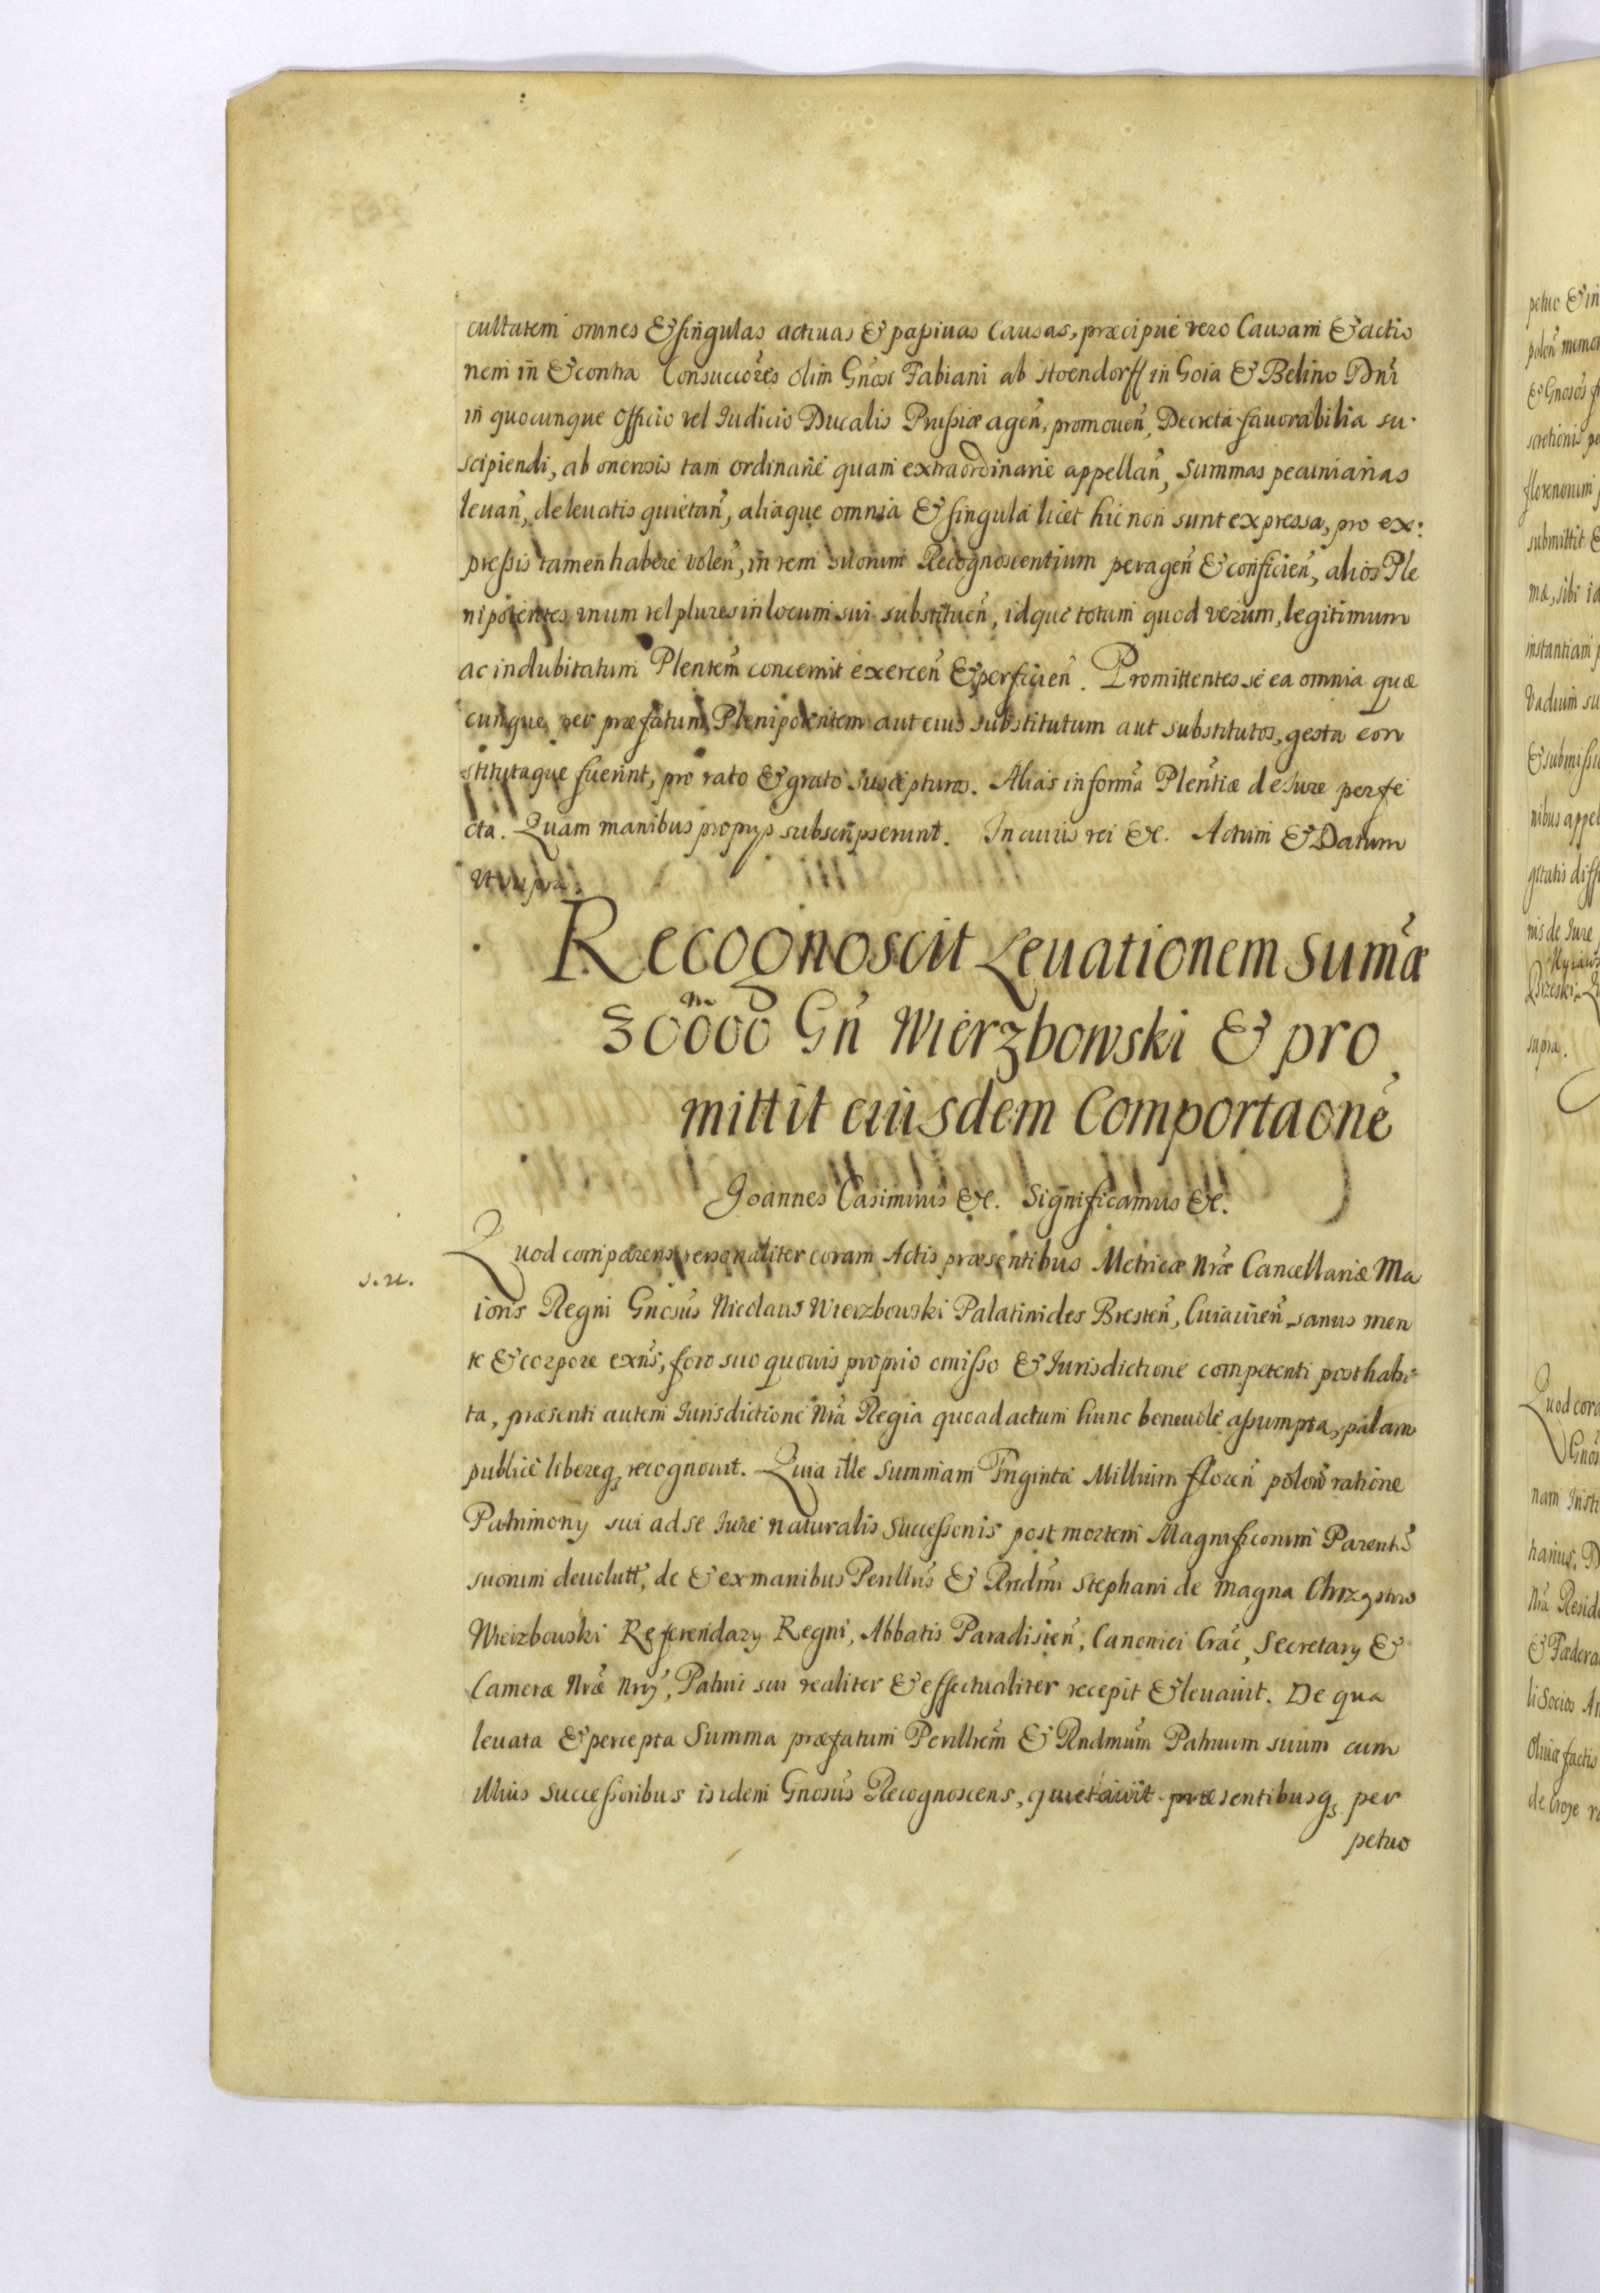 cultatem omnes & singulas activas & passivas Causas, præcipuè vero Causam & actio
nem in & contra Consuccores olim Gnosi Fabiani ab Hoendorff in Goia & Belino Dni
in quocunque Officio vel Iudicio Ducalis Prussiæ agen, promouen, Decreta fauorabilia su-
scipiendi, ab onerosis tam ordinariè quam extraordinariè appellan, Summas pecuniarias
leuan, de leuatis quietan, aliaque omnia & singula licet hic non sunt expressa, pro ex:
pressis tamen habere volen, in rem suorum Recognoscentium peragen & conficien, alios Ple
nipotentes, unum vel plures in locum sui substituen, idque totum quod verum, legitimum
ac indubitatum Plentem concernit exercen & perficien. Promittentes se ea omnia quæ
cunque per præfatum Plenipotentem aut eius substitutum aut substitutos, gesta con
stitutaque fuerint, pro rato & grato suscepturos. Alias in forma Plentiæ de Iure perfe
cta. Quam manibus proprijs subscripserunt. In cuius rei &c. Actum & Datum
ut supra.
Recognoscit Leuationem Sumæ
30000 Gn Wierzbowski & pro
mittit eiusdem Comportaonē
Joannes Casimirus &c. Significamus &c.
Quod comparens personaliter coram Actis præsentibus Metricæ Nræ Cancellariæ Ma
s. n.
ioris Regni Gnosus Nicolaus Wierzbowski Palatinides Bresten, Cuiauien, sanus men
te & corpore exns, foro suo quouis proprio omisso & Iurisdictione competenti posthabi-
ta, præsenti autem Iurisdictione Nra Regia quoad actum hunc beneuolè assumpta, palam
publicè libereq recognouit. Quia ille Summam Triginta Millium floren polon ratione
Patrimonij sui ad se Iure naturalis Successionis post mortem Magnificorum Parentū
suorum deuolutt, de & ex manibus Perillris & Rndmi Stephani de Magna Chrzastow
Wierzbowski Referendarij Regni, Abbatis Paradisien, Canonici Crac, Secretarij &
Cameræ Nræ Nrij, Patrui sui realiter & effectualiter recepit & leuauit. De qua
leuata & percepta Summa præfatum Perillrem & Rndmum Patruum suum cum
illius Successoribus isidem Gnosus Recognoscens, quietauit præsentibusq per
petuo